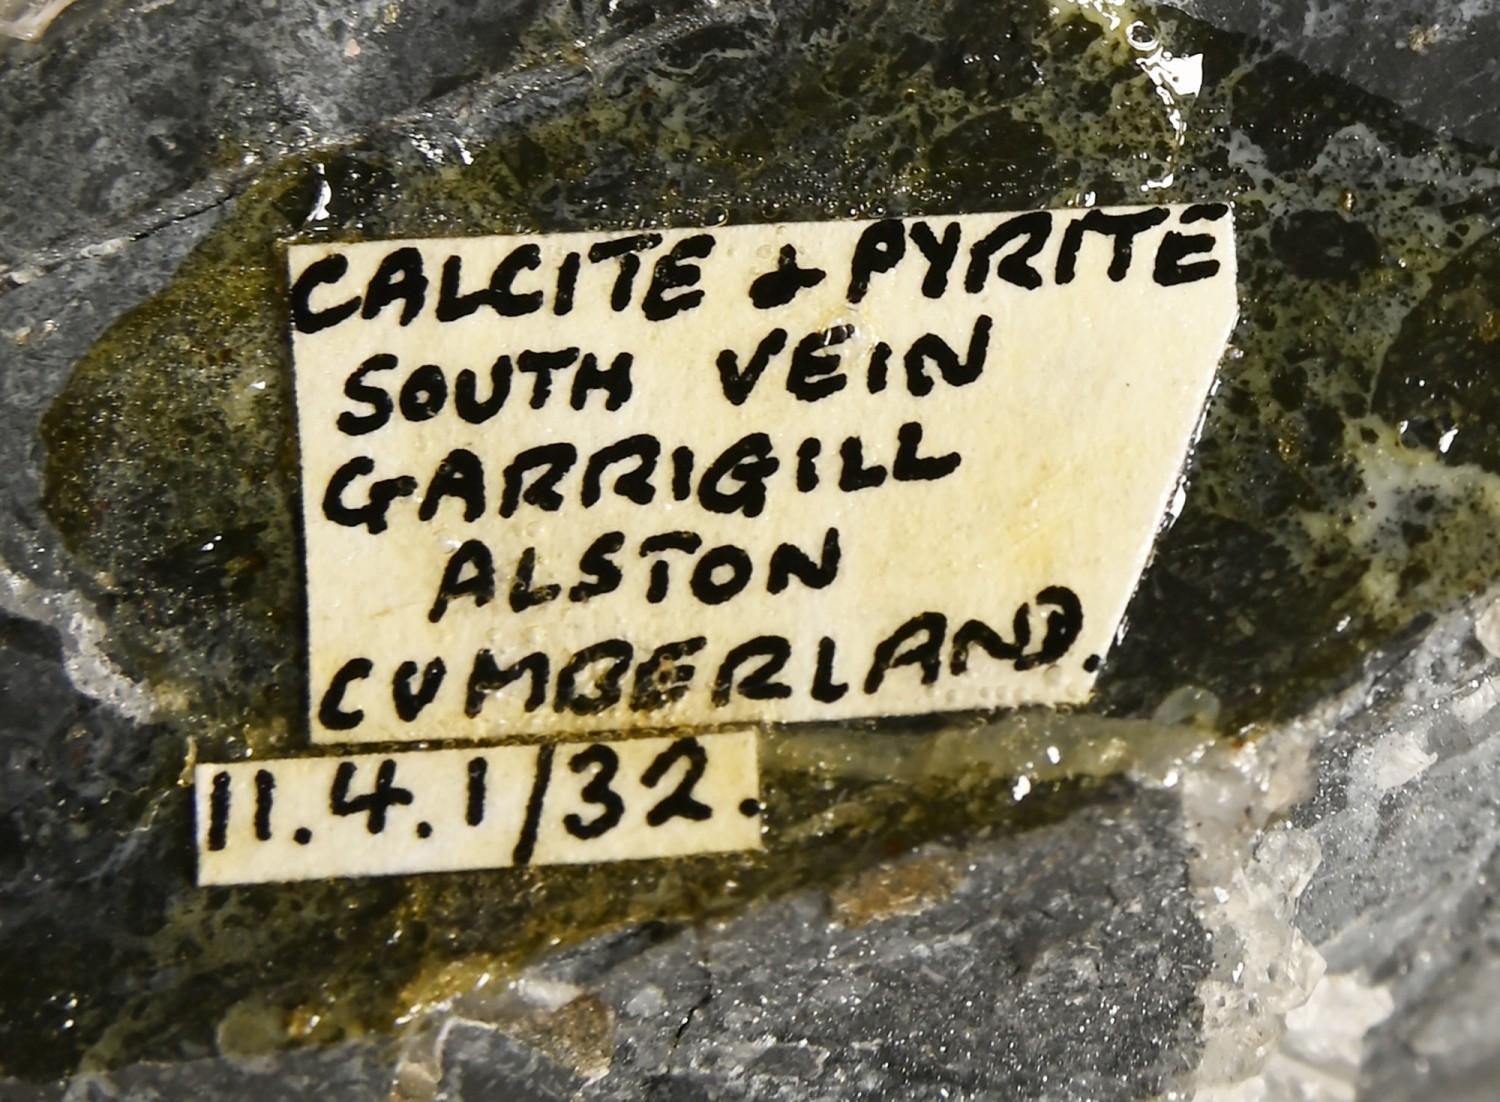 CALCITE + PYRITE
SOUTH VEIN
GARRIGILL
ALSTON
CUMBERLAND.
11.4.1/32.